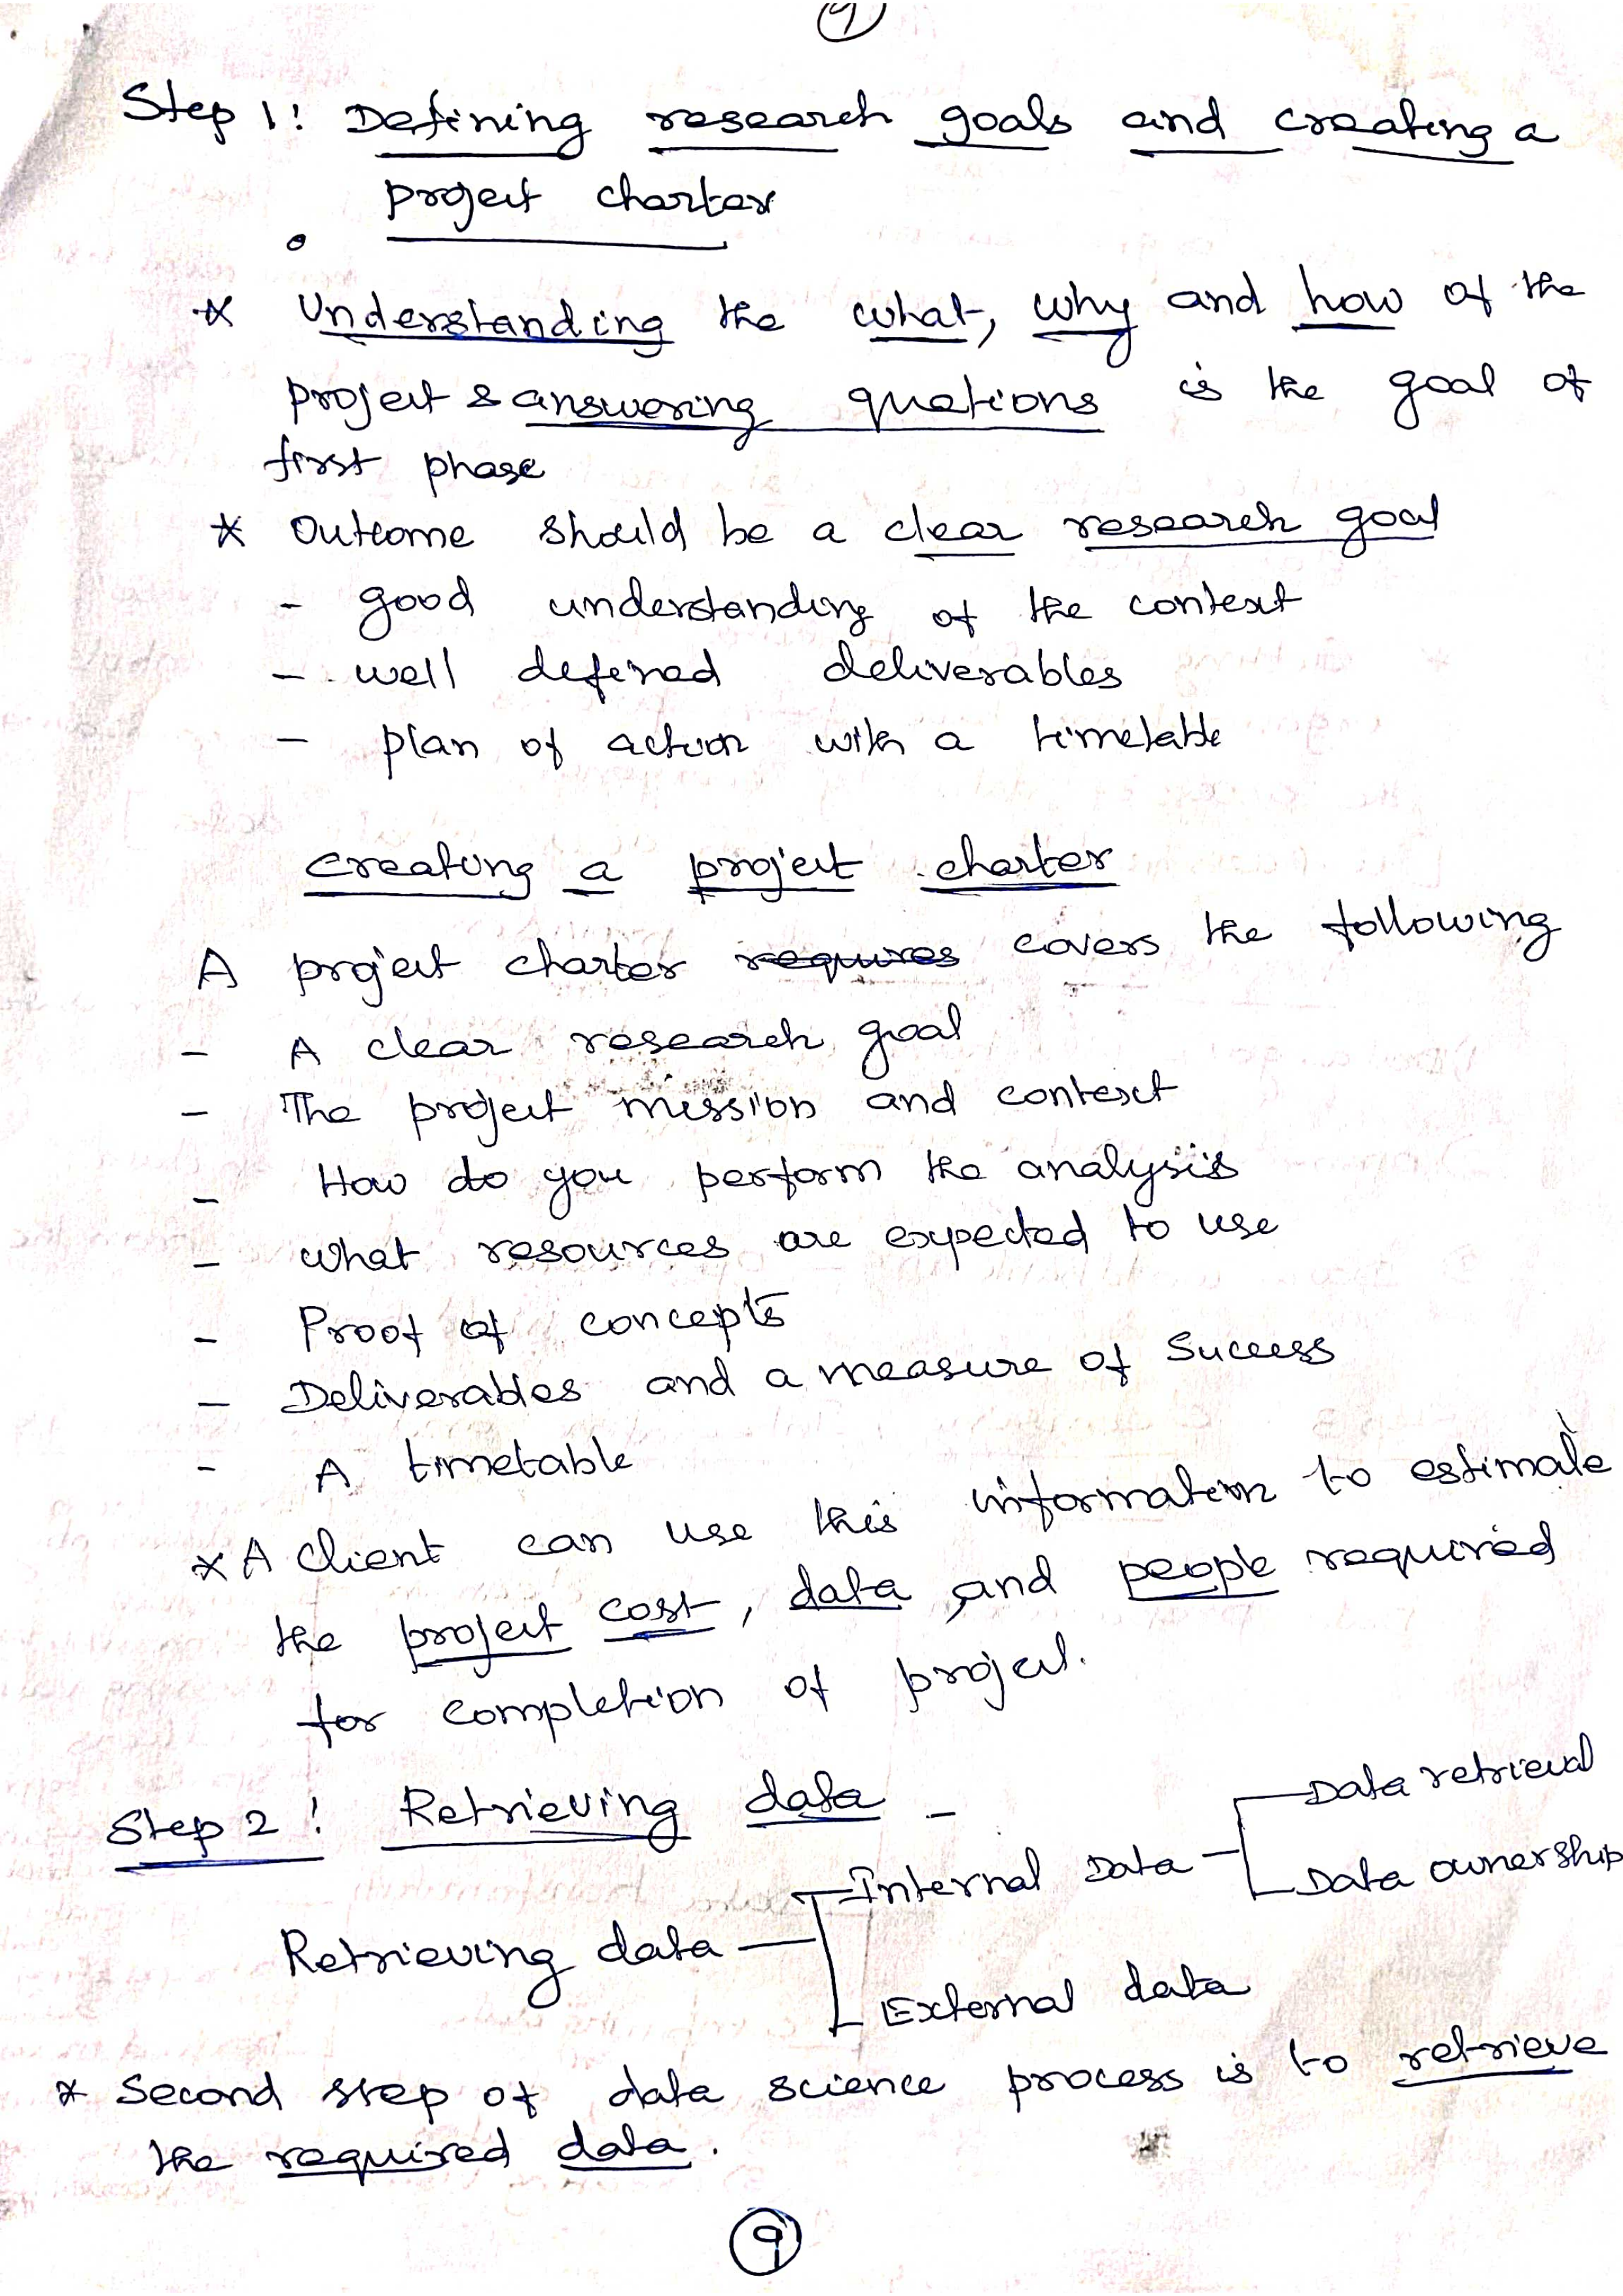 9
Step 1: Defining research goals and creating a
project charter
* Understanding the what, why and how of the
project & answering quations is the goal of
first phase
* Outcome should be a clear research goal
- good understanding of the context
- well defined deliverables
- plan of action with a timetable
creating a project charter
A project charter requires covers the following
- A clear research goal
- The project mission and context
- How do you perform the analysis
- what resources are expected to use
- Proof of concepts
- Deliverables and a measure of Success
- A timetable
* A client can use this information to estimate
the project cost, data and people required
for completion of project.
Step 2: Retrieving data -
Data retrieval
Internal Data
Data ownership
Retrieving data
External data
* Second step of data science process is to retrieve
the required data.
9